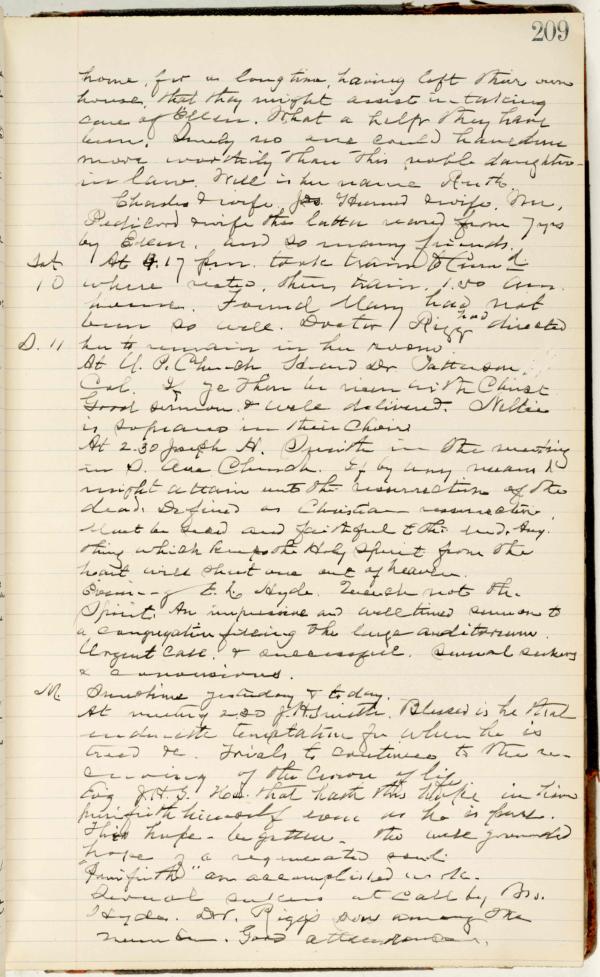 209
home, for a long time, having left their own
house, that they might assist in taking
care of Ellen. What a help they have
been. Surely no one could have done
more worthily than this noble daughter-
in law. Well is her name Ruth.
Charles & wife, Jos. & wife, Wm.
Pedicord & wife this latter reared from 7 yrs
by Ellen, and so many friends.
Sat. At 9.17 p.m. took train to
10 where train, 1.00 a.m.
home. Found Mary had not
been so well. Doctor Rigg had directed
S. 11 her to remain in her room
At U. P. Church Heard Dr. Patterson,
Col. If ye then be risen with Christ
Good sermon & well delivered. Nellie
is soprano in their Choir
At 2.30 Joseph H. Smith in the meeting
in S. Ave Church. If by any means I
might attain unto the resurrection of the
dead. Defined as Christian resurrection.
Must be and faithful to the end. Any
thing which keeps the Holy Spirit from the
heart will shut one out of heaven.
Evening E. L. Hyde. Quench not the
Spirit. An impressive and well timed sermon to
a congregation filling the large auditorium.
Urgent call, & successful. Several seekers
& conversions.
M. Sunshine yesterday & today.
At meeting 2.30 J. H. Smith. Blessed is he that
endureth temptation for when he is
tried &c. Trials to continue to the re-
ceiving of the crown of life
Evg J. H. S. He that hath this hope in him
purifieth himself even as he is pure.
This hope - begotten - the well grounded
hope of a regenerated soul.
"Purifieth" an accomplished work.
Several seekers at call by Bro.
Hyde. Dr. Rigg's son among the
number. Good attendance.